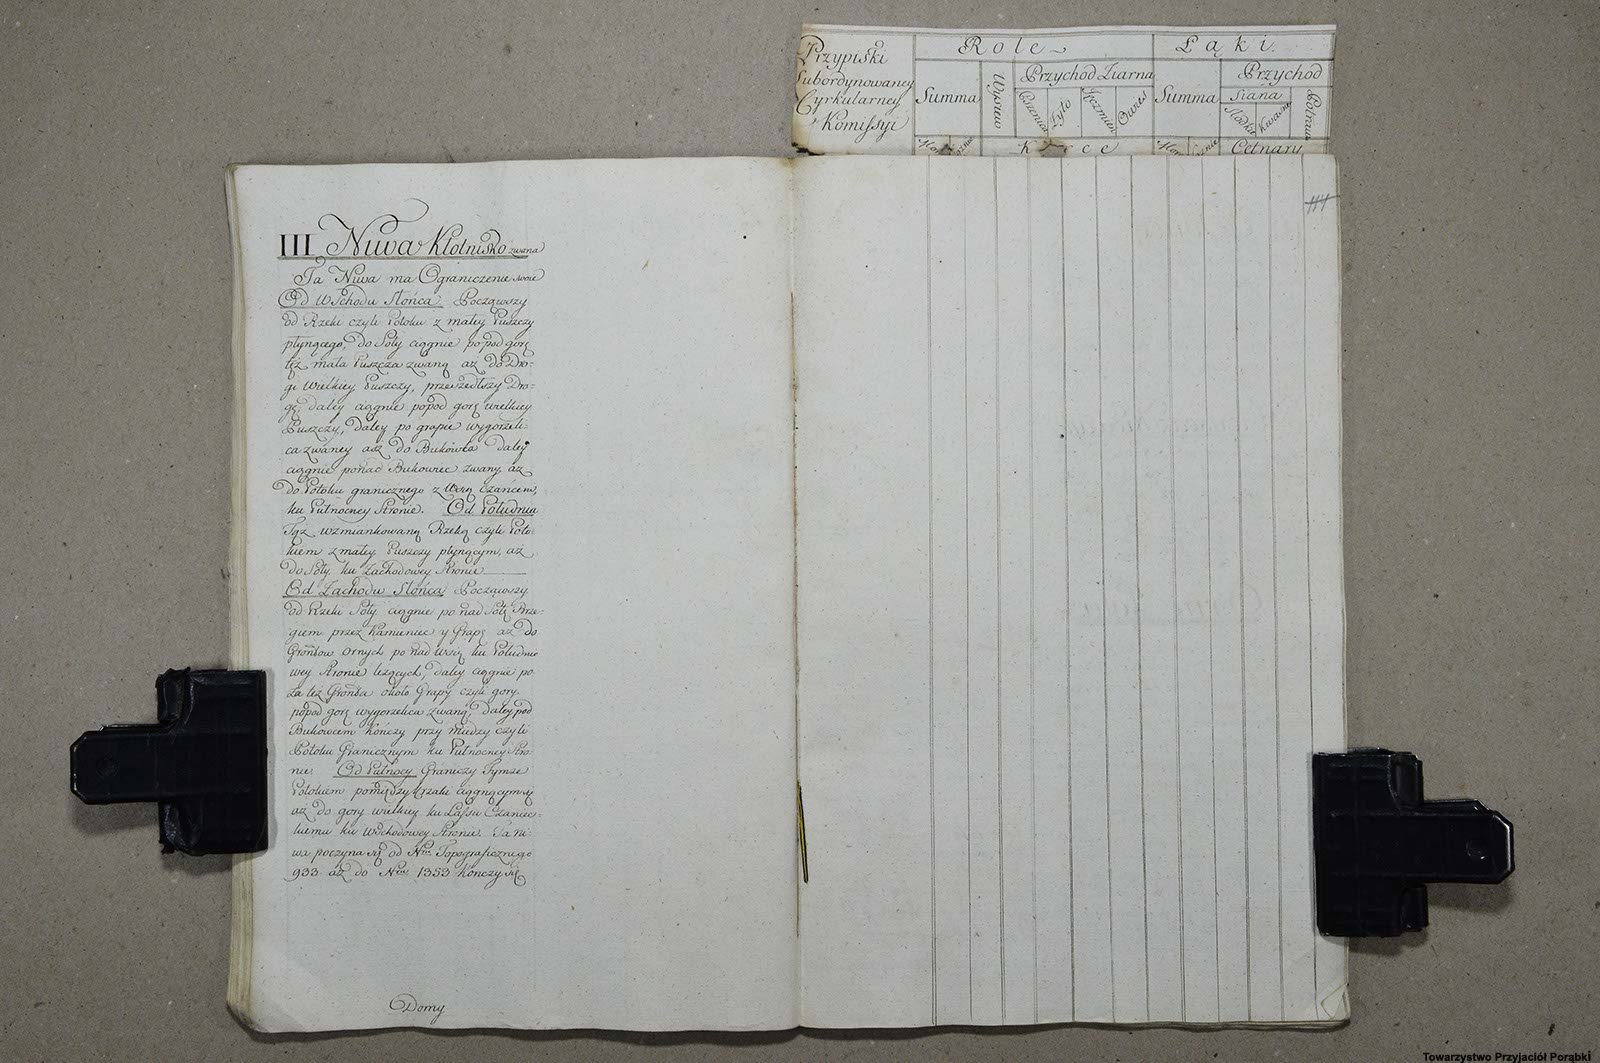 III Niwa Kłotnisko zwana
Ta Niwa ma Ograniczenie swoie
Od Wschodu Słońca. Począwszy
od Rzeki czyli Potoku z małey Puszczy
płynącego, do Soły ciągnie popod gorę
też mała Puszcza zwaną aż do Dro=
gi Wielkiey Puszczy, przeszedłszy Dro=
gę, daley ciągnie popod gorę wielkiey
Puszczy, daley po grapie wygorzeli=
ca zwaney aż do Bukowca daley
ciągnie ponad Bukowiec zwany, aż
do Potoku granicznego z Wsią Czańcem,
ku Pułnocney Stronie. Od Południa
Tąż wzmiankowaną Rzeką czyli Poto=
kiem z małey Puszczy płynącym, aż
do Soły ku Zachodowey Stronie
Od Zachodu Słońca Począwszy
od Rzeki Soły ciągnie ponad Sołę Brze=
giem przez Kamieniec y Grapę aż do
Grontow ornych ponad Wsią ku Południo
wey Stronie leżących, daley ciągnie po
za też Gronta około Grapy czyli gory
popod gorę wygorzelica zwaną, daley pod
Bukowcem kończy przy Miedzy czyli
Potoku Granicznym ku Pułnocney Stro
nie. Od Pułnocy Graniczy Tymże
Potokiem pomiędzy krzaki ciągnącym się
aż do gory wielkiey ku Lassu Czaniec=
kiemu ku Wschodowey Stronie. Ta ni=
wa poczyna się od Nru Topograficznego
933 aż do Nru 1353 kończy się
Domy
Przypiski
Subordynowaney
Cyrkularney
Komissyi
Role
Łąki
Przychod Ziarna
Przychod
Summa
Wysiew
Pszenica
Żyto
Jęczmień
Owies
Summa
Siana
Słodkie
Kwaśne
Potraw
Korce
Cetnary
114
Towarzystwo Przyjaciół Porąbki